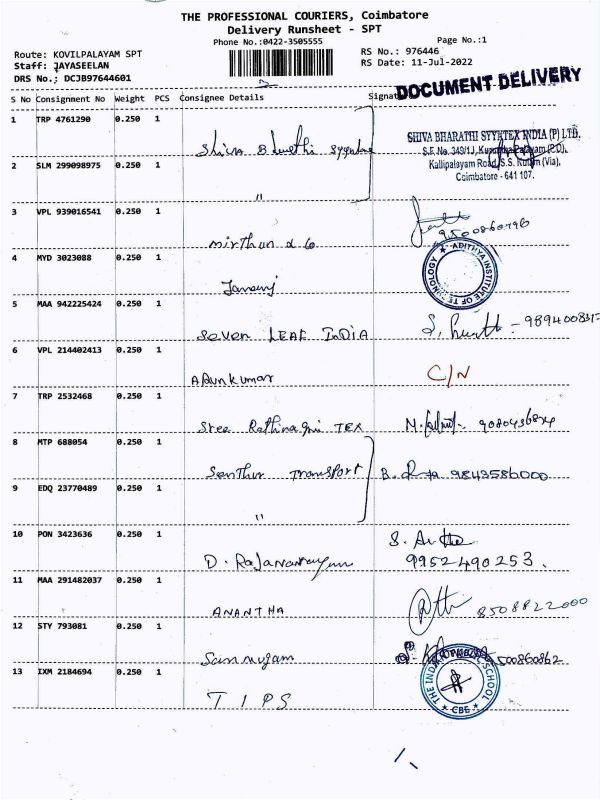 THE PROFESSIONAL COURIERS, Coimbatore
Delivery Runsheet - SPT
Phone No.:0422-3505555
Page No.:1
Route: KOVILPALAYAM SPT
Staff: JAYASEELAN
DRS No.: DCJB97644601
RS No.: 976446
RS Date: 11-Jul-2022
DOCUMENT DELIVERY
S No Consignment No Weight PCS Consignee Details
1 TRP 4761290 0.250 1
Shiva
SHIVA BHARATHI STYKTEX INDIA (P) LTD.
S.F. No. 349/1J,
Kallipalayam Road, S.S. Kulam (Via),
Coimbatore - 641 107.
2 SLM 299098975 0.250 1
"
3 VPL 939016541 0.250 1
Mirthun & Co
9500860796
4 MYD 3023088 0.250 1
ADITHYA INSTITUTE OF TECHNOLOGY
5 MAA 942225424 0.250 1
Seven LEAF INDIA
6 VPL 214402413 0.250 1
Arunkumar C/N
7 TRP 2532468 0.250 1
Sree Rathnagiri TEX
8 MTP 688054 0.250 1
Senthur Transport 9843586000
9 EDQ 23770489 0.250 1
"
10 PON 3423636 0.250 1
D. Rajanarayan
9952490253.
11 MAA 291482037 0.250 1
ANANTHA 8508822000
12 STY 793081 0.250 1
Sanmugam
13 IXM 2184694 0.250 1
TIPS
THE INDIAN PUBLIC SCHOOL
CBE